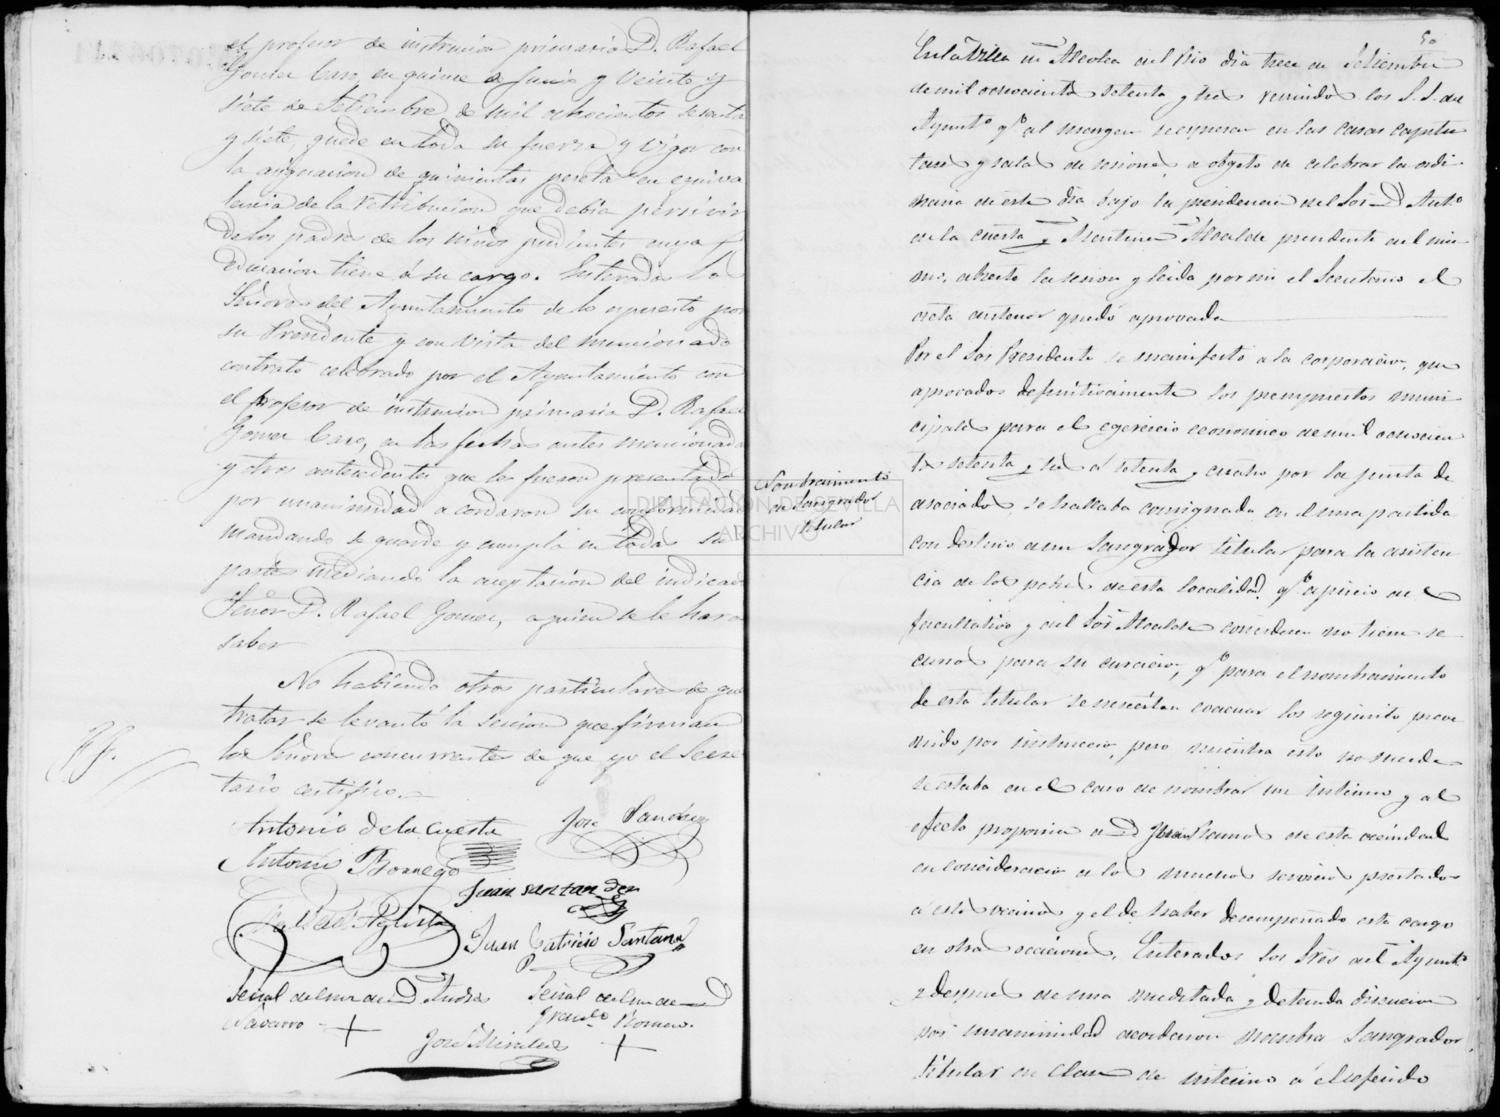 el profesor de instrucion primaria D. Rafael
Gomez Caro, en quince de Junio y Veinte y
siete de Setiembre de mil ochocientos sesenta
y siete, quede en toda su fuerza y vigor con
la asignacion de quinientas peseta en equiva
lencia de la retribucion que debia persivir
de los padres de los niños pudientes cuya
educacion tiene á su cargo. Enterados los
Señores del Ayuntamiento de lo espuesto por
su Presidente y con vista del mencionado
contrato celebrado por el Ayuntamiento con
el profesor de instrucion primaria D. Rafael
Gomez Caro, en las fechas antes mencionadas
y otros antecedentes que les fueron presentados
por unanimidad acordaron su
mandando se guarde y cumpla en todas sus
partes mediando la aceptacion del indicado
Señor D. Rafael Gomez, a quien se le hara
saber
No habiendo otros particulares de que
tratar se levantó la sesion que firman
los Señores concurrentes de que yo el Secre
tario certifico.
Antonio de la Cuesta
Jose Sanchez
Antonio Borrego
Juan santander
Juan Patricio Santana
Señal de Cruz de D. Andres
Navarro +
Señal de Cruz de D
Romero. +
Jose Mirales
50
En la Villa de Alcolea del Rio dia trece de Setiembre
de mil ochocientos setenta y tres reunidos los S.S. del
Ayunto qe al margen se espresan en las casas capitu
lares y sala de sesiones, a objeto de celebrar la ordi
naria de este dia bajo la presidencia del Sor D Anto
de la Cuesta y Martinez Alcalde presidente del mis
mo, abierta la sesion y leida por mi el Secretario el
acta anterior quedó aprovada
Por el Sor Presidente se manifesto a la corporacion, que
aprovados definitivamente los presupuestos muni
cipales para el egercicio economico de mil ochocien
tos setenta y tres á setenta y cuatro por la junta de
asociados se hallaba consignada en el una partida
con destino a un Sangrador titular para la asisten
cia de los pobres de esta localidad qe a juicio de
facultativo y del Sor Alcalde consideren no tienen re
cursos para su curacion, qe para el nombramiento
de esta titular se nescesitan evacuar los requisitos preve
nidos por instruccion, pero mientras esto no suceda
se estaba en el caso de nombrar un interino y al
efecto proponia a D de esta vecindad
en consideracion a los muchos servicios prestados
á este vecinos y el de haber desempeñado este cargo
en otras ocaciones, Enterados los Sres del Ayunto
y despues de una meditada y detenida discucion
por unanimidad acordaron nombrar Sangrador
titular en clase de interino á el referido
Nombramiento
de Sangrador
titular
DIPUTACIÓN DE SEVILLA
ARCHIVO